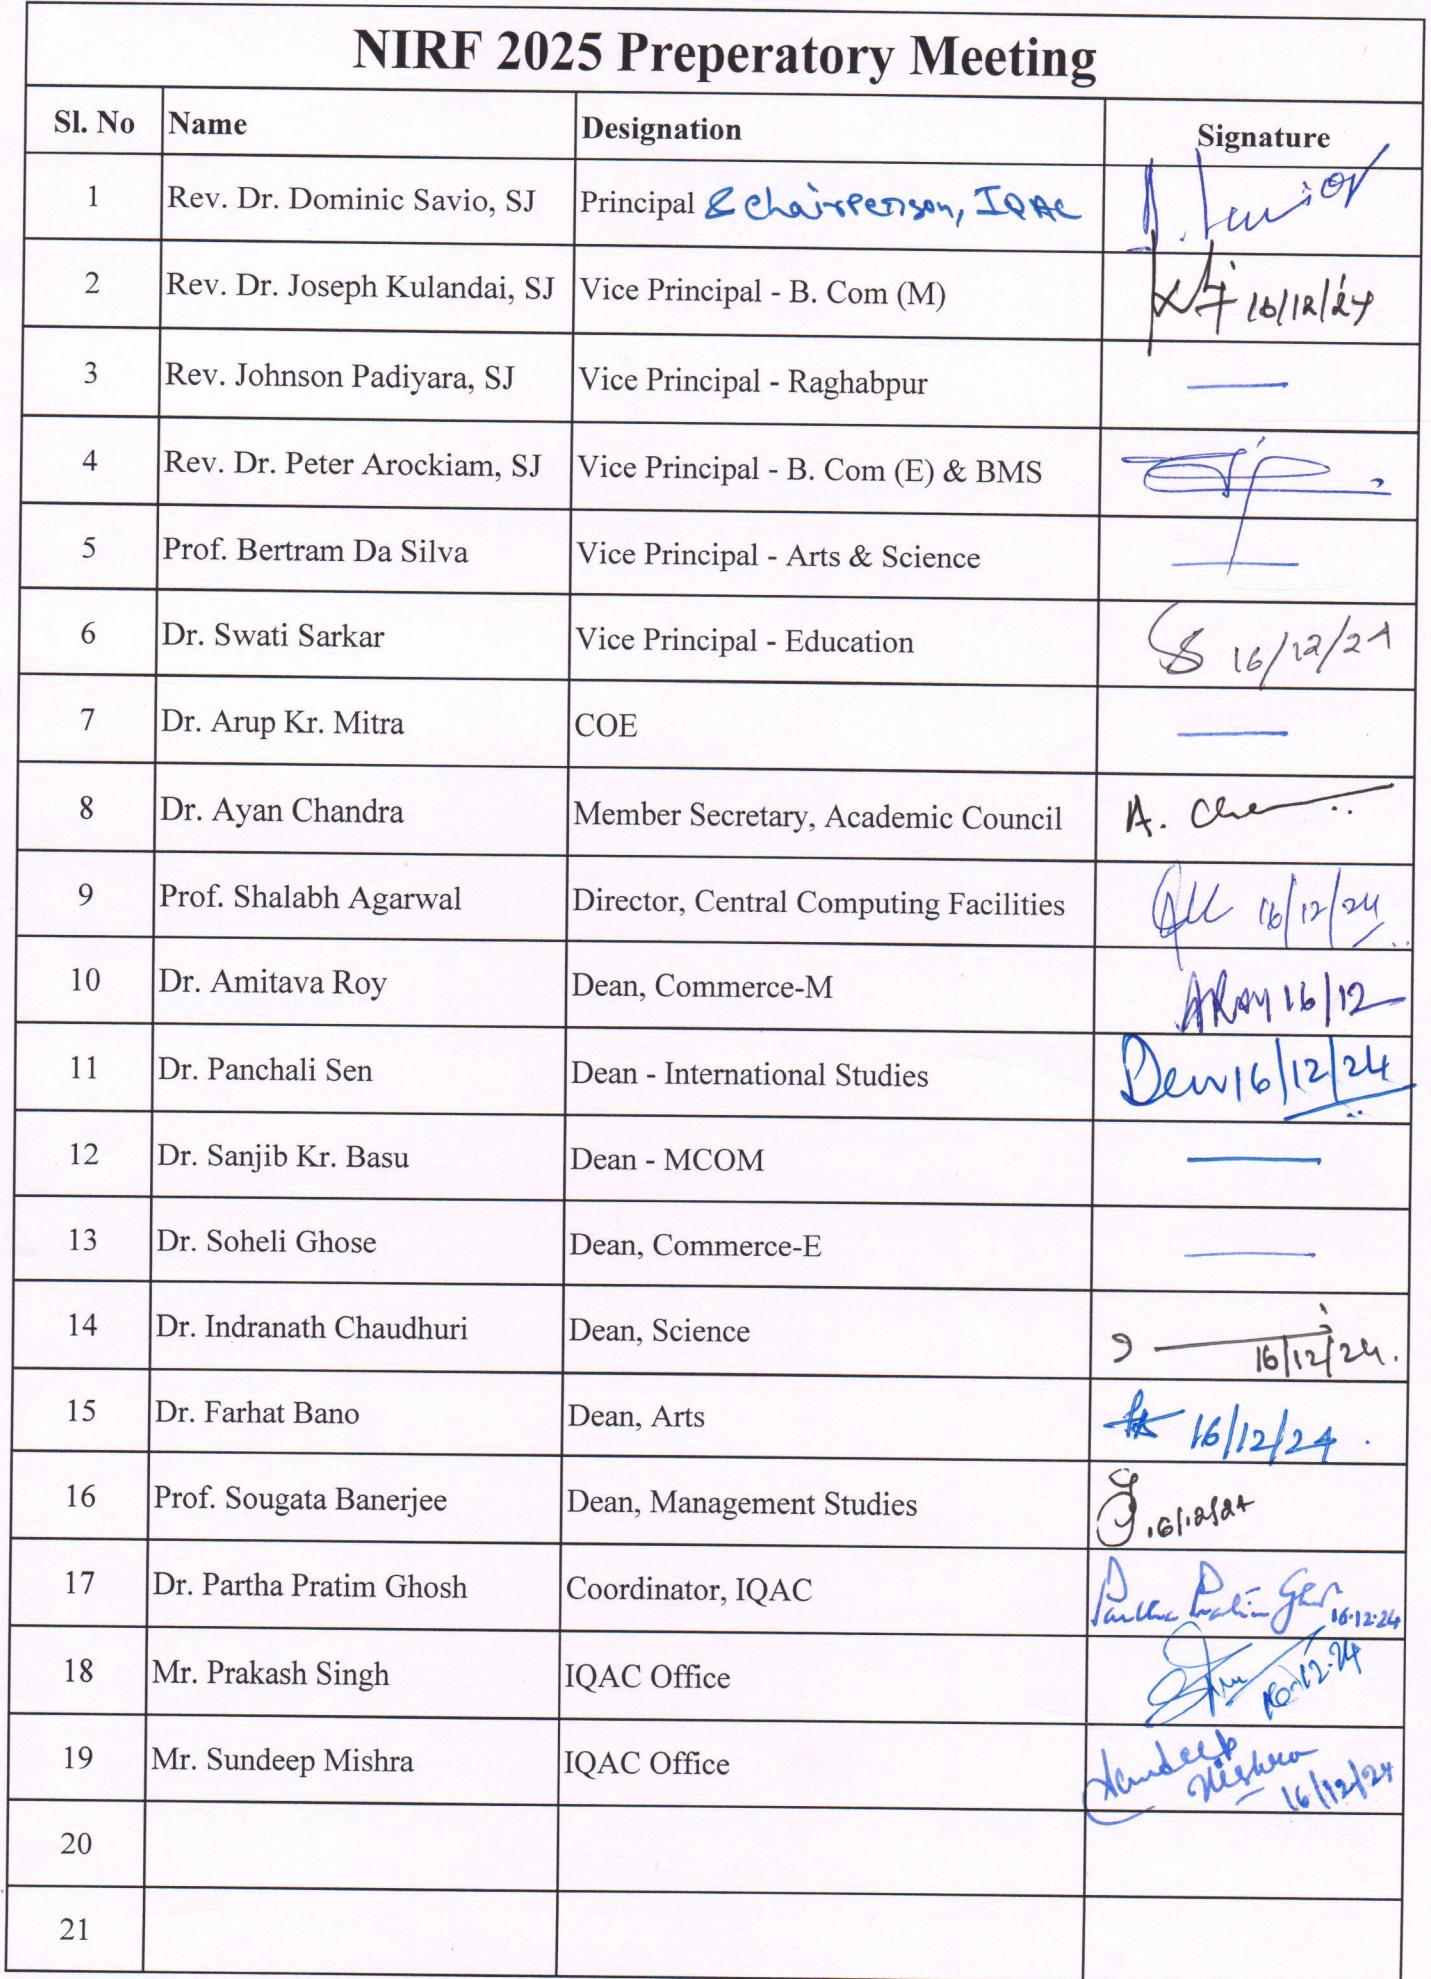 NIRF 2025 Preperatory Meeting
Sl. No Name Designation Signature
1 Rev. Dr. Dominic Savio, SJ Principal & Chairperson, IQAC
2 Rev. Dr. Joseph Kulandai, SJ Vice Principal - B. Com (M) 16/12/24
3 Rev. Johnson Padiyara, SJ Vice Principal - Raghabpur —
4 Rev. Dr. Peter Arockiam, SJ Vice Principal - B. Com (E) & BMS
5 Prof. Bertram Da Silva Vice Principal - Arts & Science —
6 Dr. Swati Sarkar Vice Principal - Education 16/12/24
7 Dr. Arup Kr. Mitra COE —
8 Dr. Ayan Chandra Member Secretary, Academic Council A.
9 Prof. Shalabh Agarwal Director, Central Computing Facilities 16/12/24
10 Dr. Amitava Roy Dean, Commerce-M ARAY 16/12
11 Dr. Panchali Sen Dean - International Studies 16/12/24
12 Dr. Sanjib Kr. Basu Dean - MCOM —
13 Dr. Soheli Ghose Dean, Commerce-E —
14 Dr. Indranath Chaudhuri Dean, Science 16/12/24.
15 Dr. Farhat Bano Dean, Arts 16/12/24.
16 Prof. Sougata Banerjee Dean, Management Studies 16/12/24
17 Dr. Partha Pratim Ghosh Coordinator, IQAC Partha Pratim Ghosh 16.12.24
18 Mr. Prakash Singh IQAC Office 16.12.24
19 Mr. Sundeep Mishra IQAC Office Sundeep Mishra 16/12/24
20
21